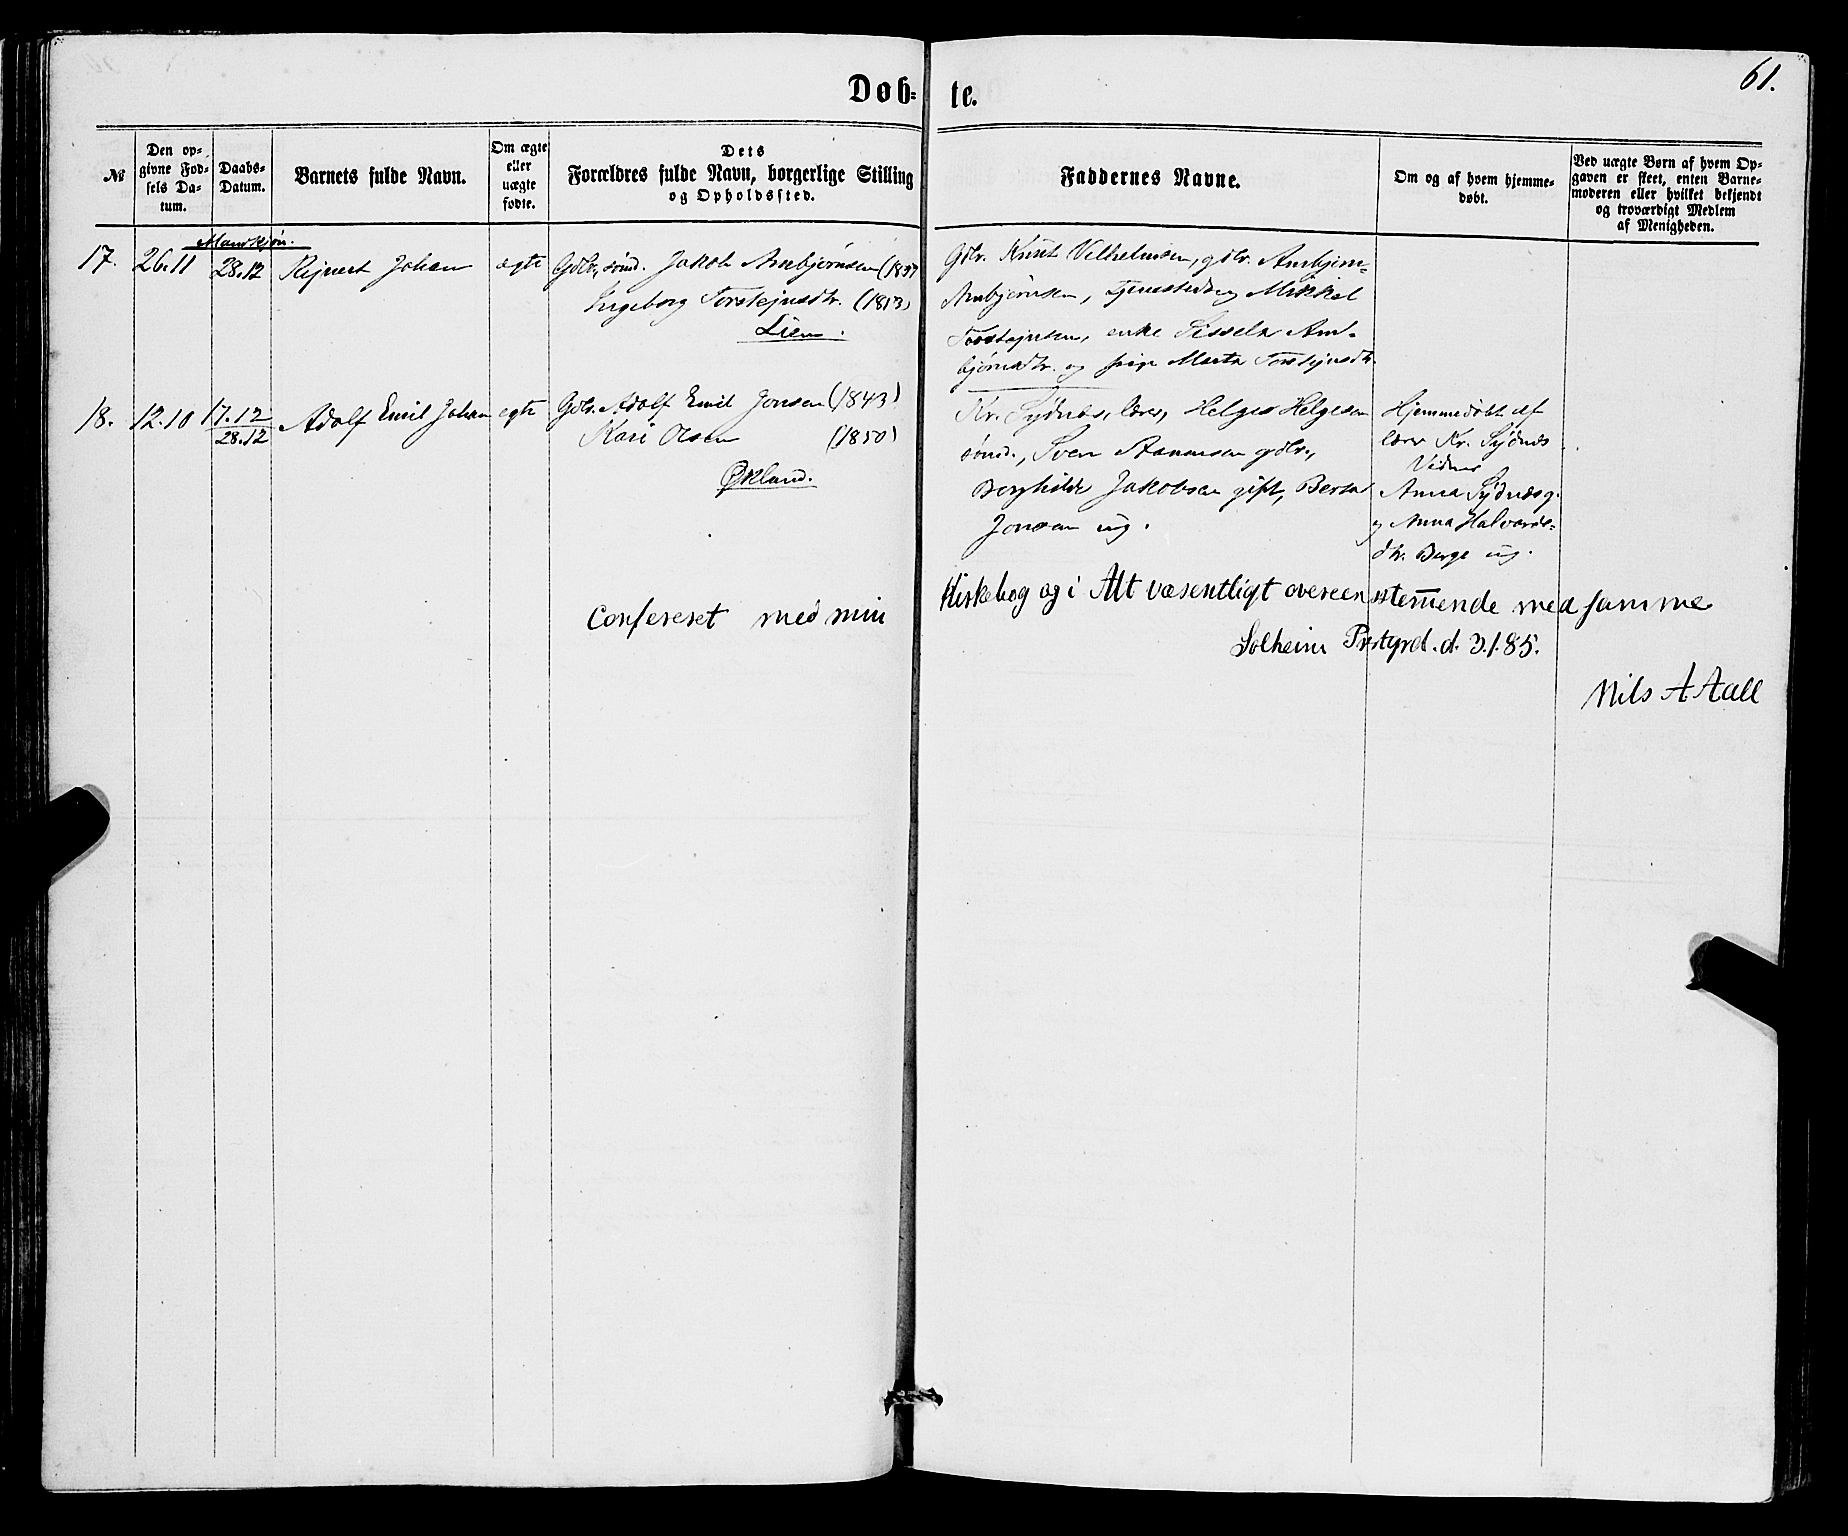 61.
Døb- te.
№
Den op-
givne Fød-
sels Da-
tum.
Daabs-
Datum.
Barnets fulde Navn.
Om ægte
eller
uægte
fødte.
Dets
Forældres fulde Navn, borgerlige Stilling
og Opholdssted.
Faddernes Navne.
Om og af hvem hjemme-
døbt.
Ved uægte Børn af hvem Op-
gaven er skeet, enten Barne-
moderen eller hvilket bekjendt
og troværdigt Medlem
af Menigheden.
Mandkjøn.
17. 26.11 28.12 Rejnert Johan ægte
Gdbr., smd. Jakob Ambjørnsen
Ingeborg Torstejnsdtr. (1843)
Lien.
Gdbr. Knut Vilhelmsen, gdbr. Ambjørn
Ambjørnsen, Mikkel
Torstejnsen, enke Sissela Am-
bjørnsdtr. og pige Marta Torstejnsdtr.
18. 12.10 17.12
28.12
Adolf Emil Johan egte
Gdbr. Adolf Emil Jonsen (1843)
Kari Olsen (1850)
Økland.
Kr. Sydnes, lærer, Helges Helgesen
smd., Sven Aanensen gdbr.,
Berghilde Jakobsen gift, Berta
Jonsen ug.
Hjemmedøbt af
lærer Kr. Sydnes
Vidner
Anna Sydnes g.
og Anna Halvords-
dtr. Berge ug.
Confereret med min Kirkebog og i Alt væsentligt overeenstemende med samme
Solheim Prstgrd. d. 3.1.85.
Nils A Aall